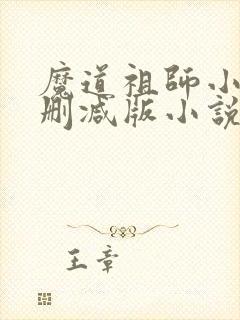 魔道祖師小
刪減版小說
王章